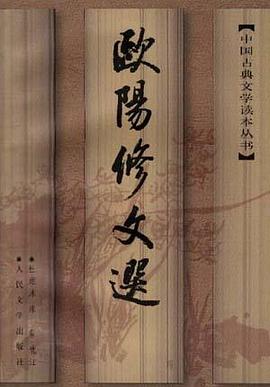 【中国古典文学读本丛书】
歐陽修文選
●杜维沫
●人民文学出版社